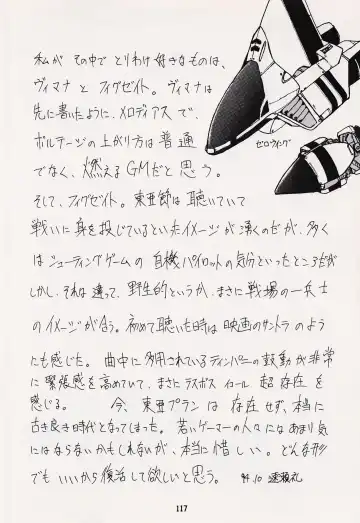 私が その中で とりわけ 好きなものは、
ヴィマナ と フィグゼイト。ヴィマナは
先に書いたように、メロディアス で、
ボルテージの 上がり方は 普通
でなく、燃えるGMだと思う。
そして、フィグゼイト。東亜節は聴いていて
戦いに 身を投じているといったイメージが湧くのだが、多く
は シューティングゲームの 自機パイロットの気分といったところだが
しかし、それは違って、野生的というか、まさに戦場の一兵士
のイメージが合う。初めて聴いた時は 映画のサントラのよう
にも感じた。曲中に多用されているティンパニーの鼓動が非常
に緊張感を高めていて、まさにラスボス イコール 超存在を
感じる。 今、東亜プランは存在せず、本当に
古き良き時代となってしまった。若いゲーマーの人々にはあまり気
にはならないかもしれないが、本当に惜しい。どんな形
でもいいから復活して欲しいと思う。 94.10
ゼロウイング
117